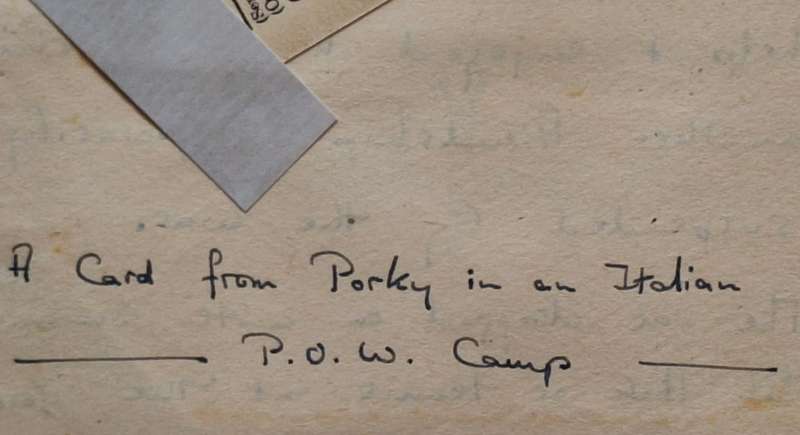 A Card from Porky in an Italian
P.O.W. Camp